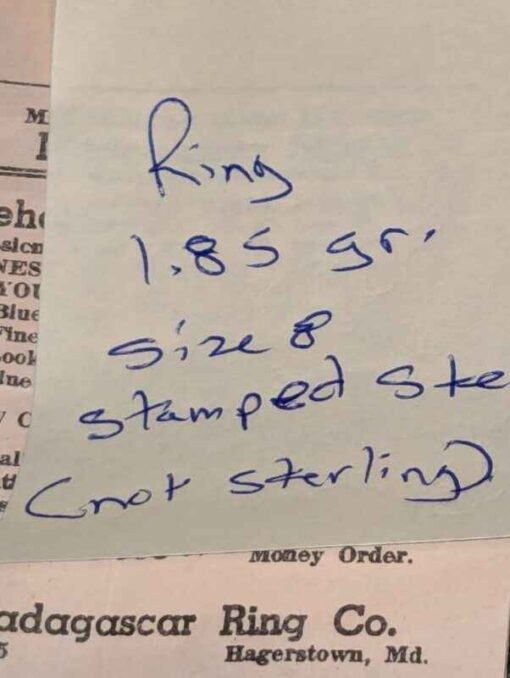 M
eh
sion
NES
YOU
Blue
Fine
ook
ine
al
Ring
1.85 gr.
size 8
stamped Ste
(not sterling)
Money Order.
adagascar Ring Co.
5
Hagerstown, Md.